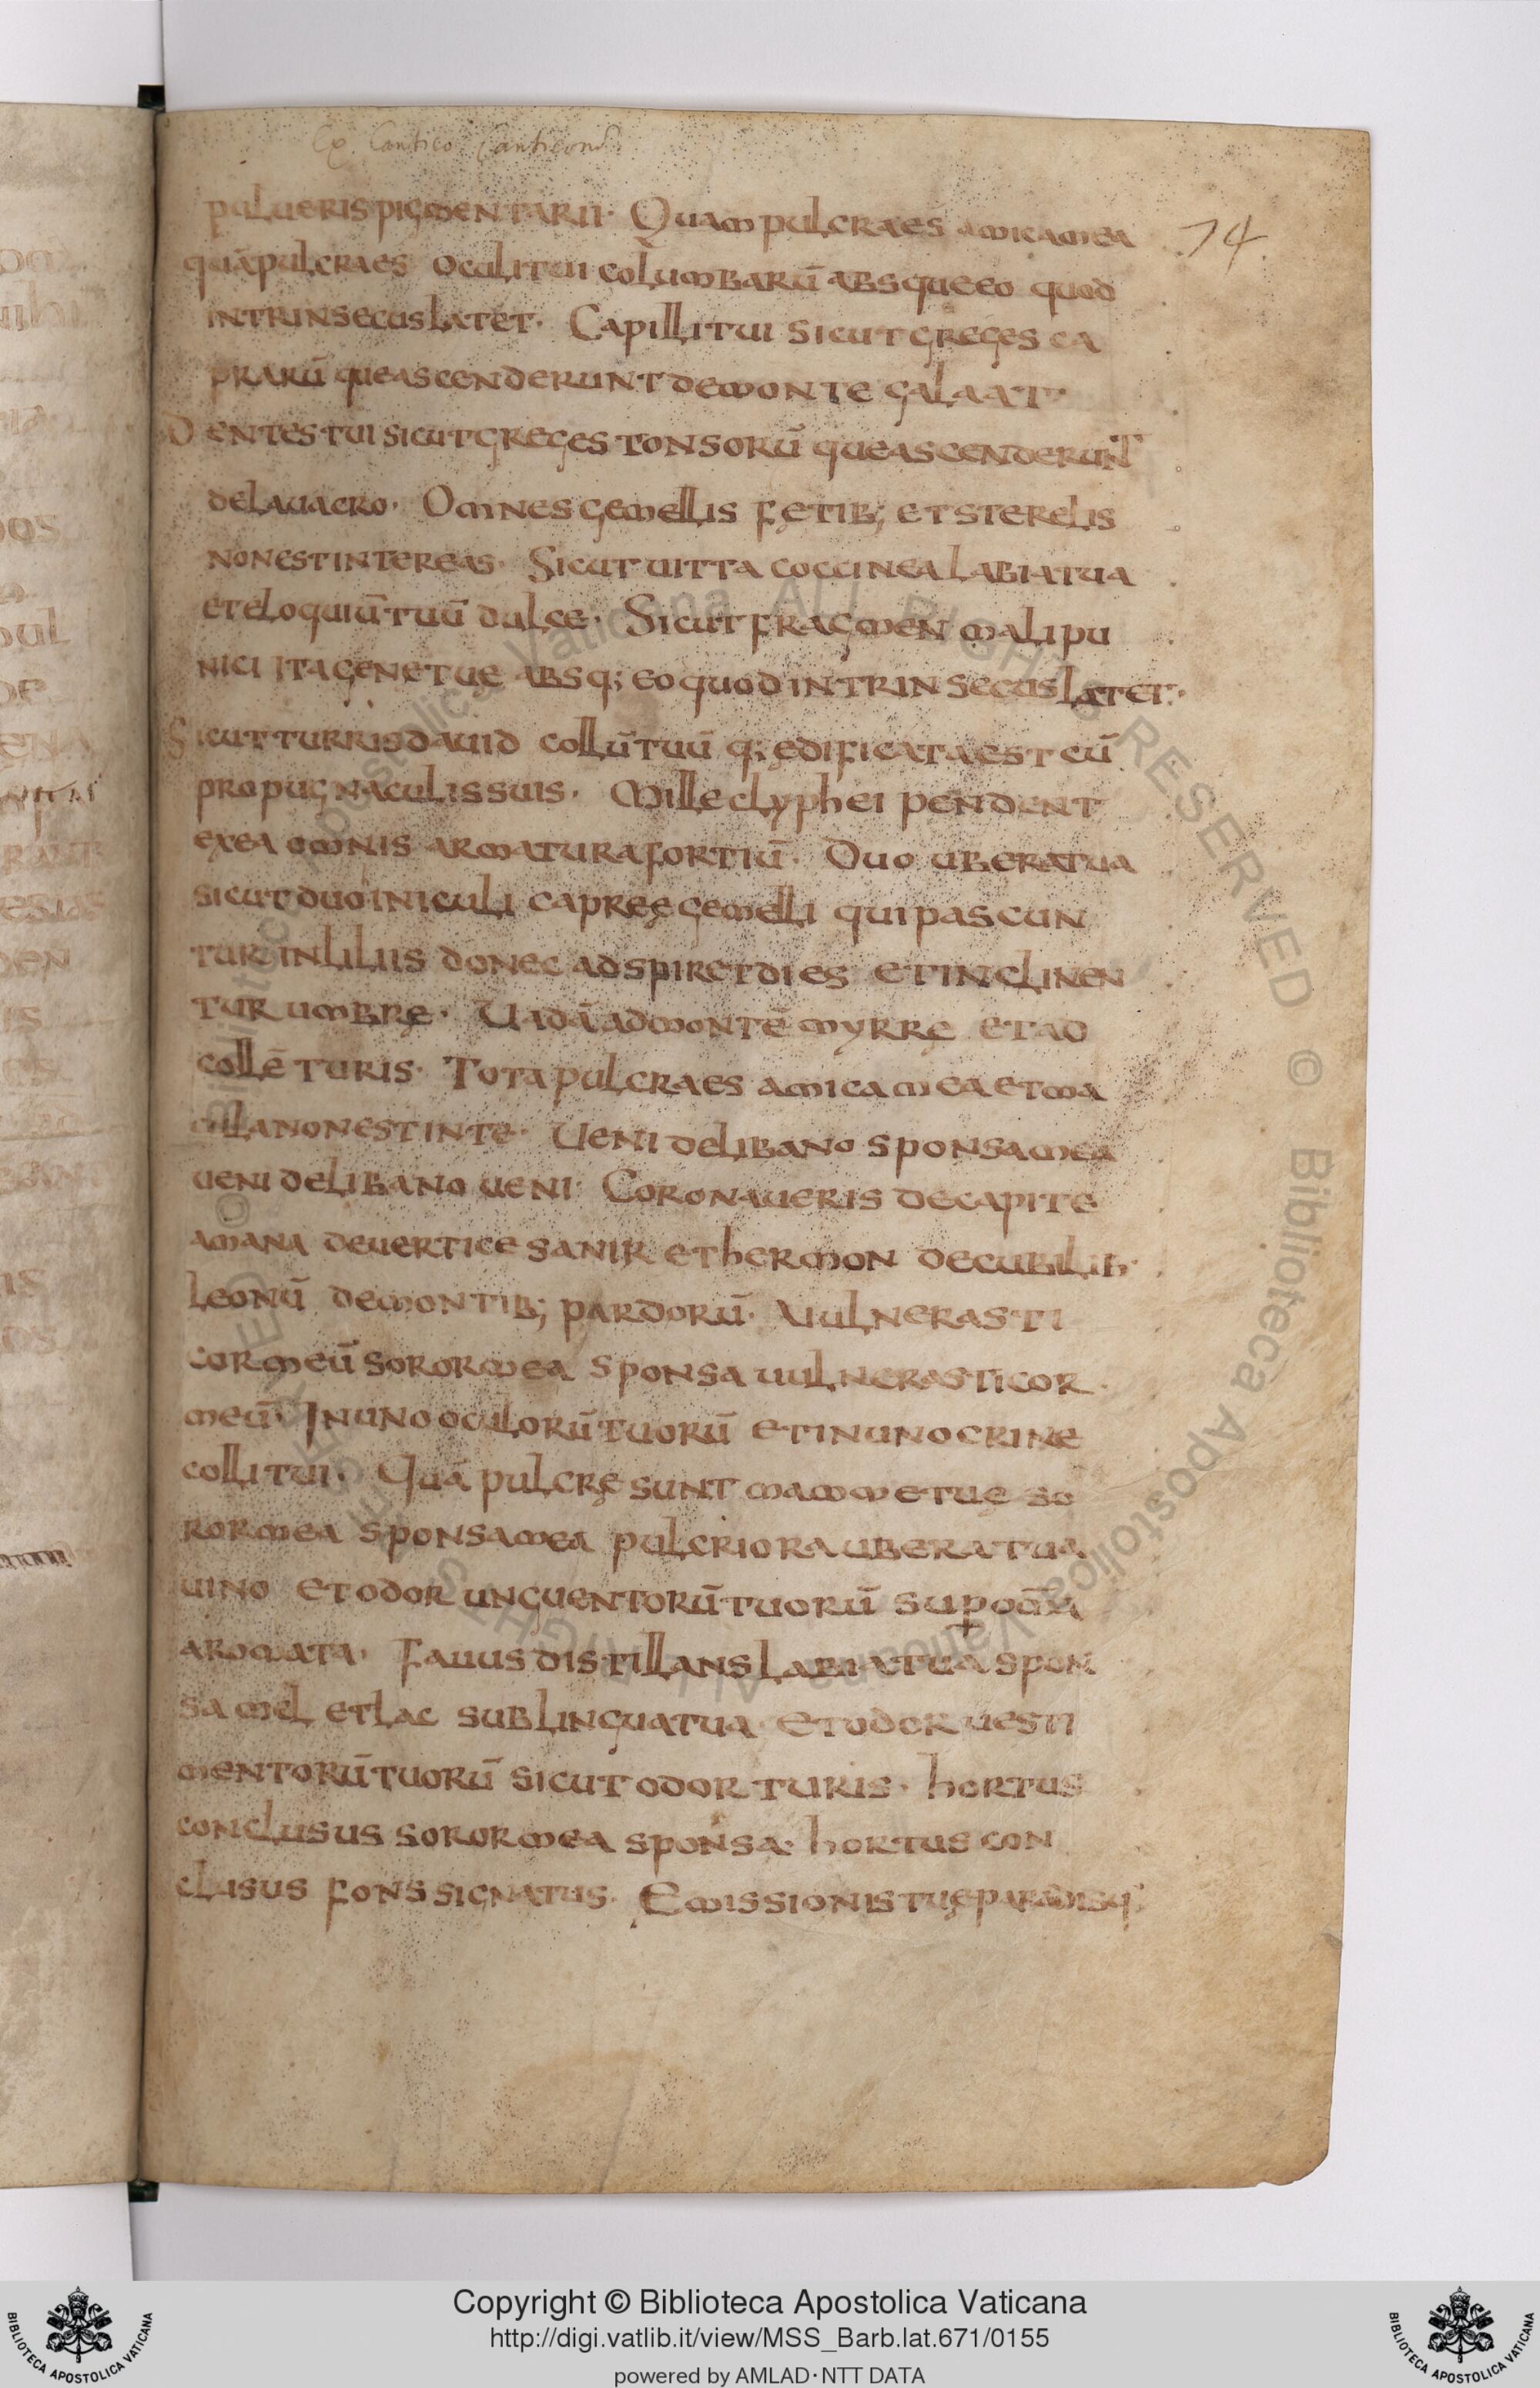 Ex. Cantico Canticorū
pulueris pigmentarii· Quam pulcra es amica mea
74.
quā pulcra es oculi tui columbarū absque eo quod
intrinsecus latet· Capilli tui sicut greges ca
prarū que ascenderunt de monte galaat·
Dentes tui sicut greges tonsorū que ascenderunt
de lauacro· Omnes gemellis fętib; et sterelis
non est inter eas· Sicut uitta coccinea labia tua
et eloquiū tuū dulce· Sicut fragmen mali pu
nici ita gene tue absq; eo quod intrinsecus latet·
Sicut turris dauid collū tuū q; ędificata est cū
propugnaculis suis· Mille clyphei pendent
ex ea omnis armatura fortiū· Duo ubera tua
sicut duo iniculi capreę gemelli qui pascun
tur in liliis donec adspiret dies et inclinen
tur umbrę· Uadā ad montē myrrę et ad
collē turis· Tota pulcra es amica mea et ma
cula non est in te· Ueni de libano sponsa mea
ueni de libano ueni· Coronaueris de capite
amana de uertice sanir et hermon de cubilib·
leonū de montib; pardorū· Uulnerasti
cor meū soror mea sponsa uulnerasti cor
meū· In uno oculorū tuorū et in uno crine
colli tui· Quā pulcrę sunt mamme tuę so
ror mea sponsa mea pulcriora ubera tua
uino et odor unguentorū tuorū sup om̄a
aromata· Fauus distillans labia tua spon
sa mel et lac sub lingua tua· Et odor uesti
mentorū tuorū sicut odor turis· hortus
conclusus soror mea sponsa· hortus con
clusus fons signatus· Emissionis tuę paradisq;
Copyright © Biblioteca Apostolica Vaticana
http://digi.vatlib.it/view/MSS_Barb.lat.671/0155
powered by AMLAD·NTT DATA
BIBLIOTECA APOSTOLICA VATICANA
BIBLIOTECA APOSTOLICA VATICANA